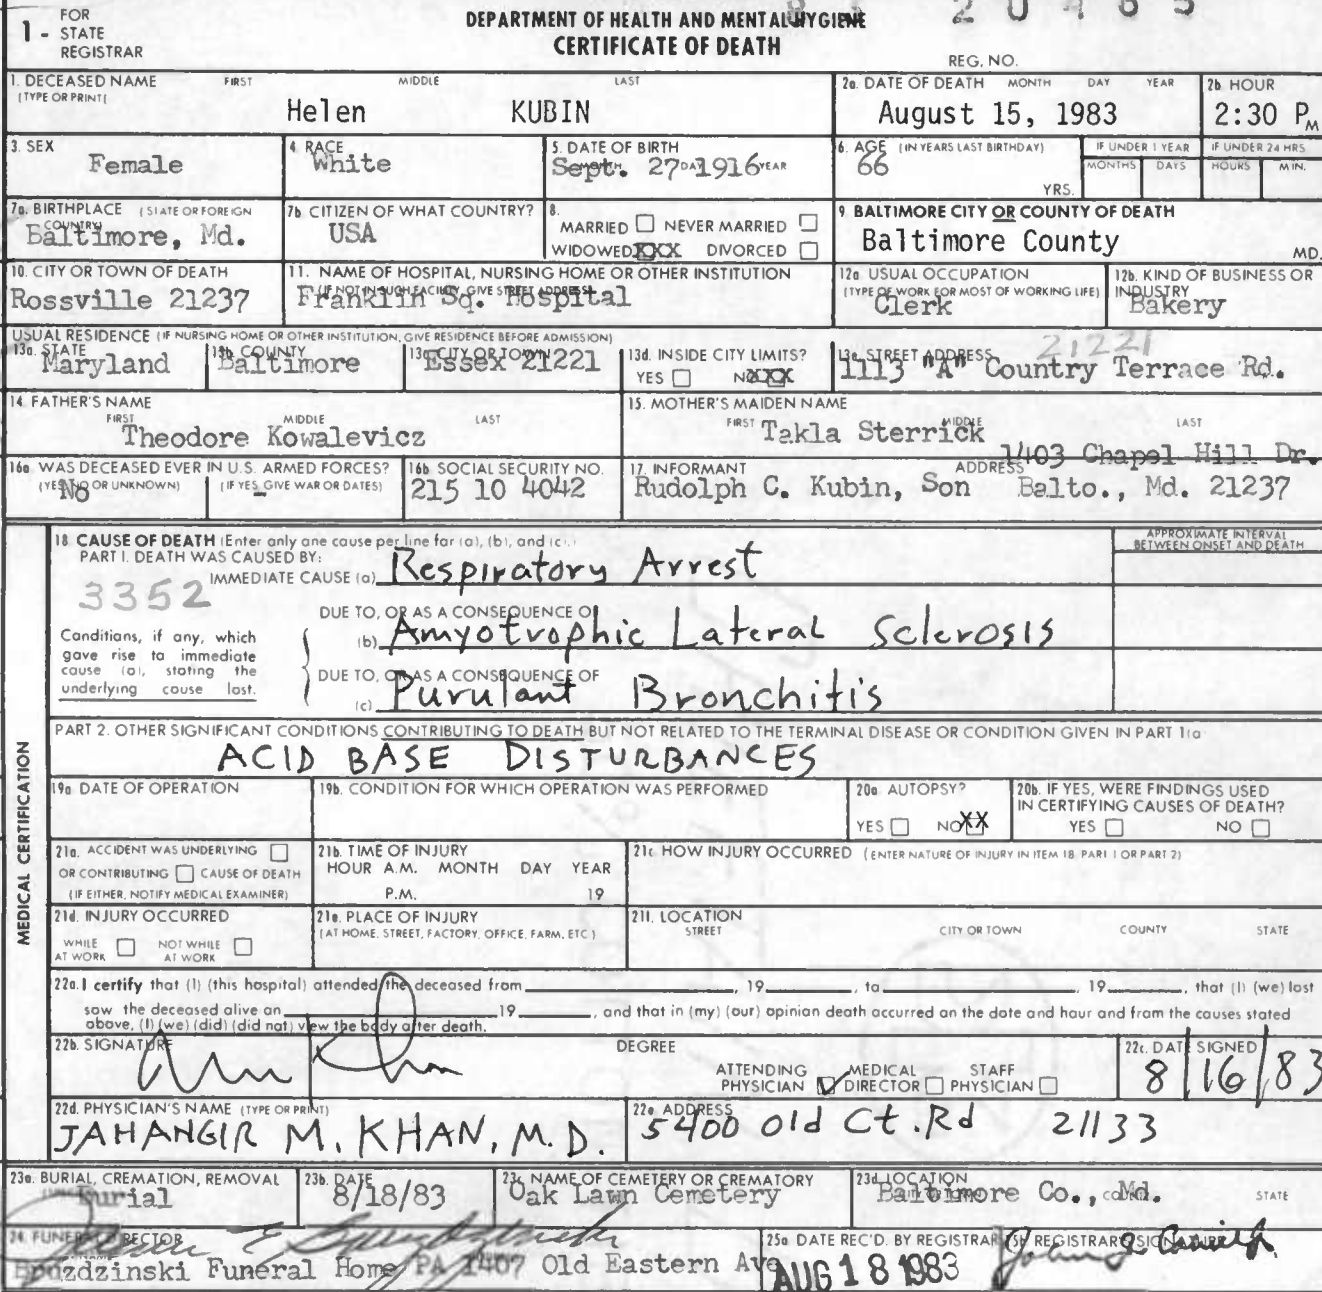 1 - FOR STATE REGISTRAR
DEPARTMENT OF HEALTH AND MENTAL HYGIENE
CERTIFICATE OF DEATH
REG. NO.
1. DECEASED NAME (TYPE OR PRINT) FIRST MIDDLE LAST
Helen KUBIN
2a. DATE OF DEATH MONTH DAY YEAR
August 15, 1983
2b. HOUR
2:30 P M
3. SEX
Female
4. RACE
White
5. DATE OF BIRTH
Sept. 27 DA 1916 YEAR
6. AGE (IN YEARS LAST BIRTHDAY)
66
YRS.
IF UNDER 1 YEAR
MONTHS DAYS
IF UNDER 24 HRS
HOURS MIN.
7a. BIRTHPLACE (STATE OR FOREIGN COUNTRY)
Baltimore, Md.
7b. CITIZEN OF WHAT COUNTRY?
USA
8.
MARRIED NEVER MARRIED
WIDOWED XXX DIVORCED
9. BALTIMORE CITY OR COUNTY OF DEATH
Baltimore County
MD.
10. CITY OR TOWN OF DEATH
Rossville 21237
11. NAME OF HOSPITAL, NURSING HOME OR OTHER INSTITUTION
(IF NOT IN SUCH FACILITY, GIVE STREET ADDRESS)
Franklin Sq. Hospital
12a. USUAL OCCUPATION
(TYPE OF WORK FOR MOST OF WORKING LIFE)
Clerk
12b. KIND OF BUSINESS OR INDUSTRY
Bakery
USUAL RESIDENCE (IF NURSING HOME OR OTHER INSTITUTION, GIVE RESIDENCE BEFORE ADMISSION)
13a. STATE
Maryland
13b. COUNTY
Baltimore
13c. CITY OR TOWN
Essex 21221
13d. INSIDE CITY LIMITS?
YES NO XXX
13e. STREET ADDRESS
21221
1113 "A" Country Terrace Rd.
14. FATHER'S NAME
FIRST MIDDLE LAST
Theodore Kowalevicz
15. MOTHER'S MAIDEN NAME
FIRST MIDDLE LAST
Takla Sterrick
16a. WAS DECEASED EVER IN U.S. ARMED FORCES?
(YES, NO OR UNKNOWN) (IF YES, GIVE WAR OR DATES)
No -
16b. SOCIAL SECURITY NO.
215 10 4042
17. INFORMANT ADDRESS
1403 Chapel Hill Dr.
Rudolph C. Kubin, Son Balto., Md. 21237
MEDICAL CERTIFICATION
18. CAUSE OF DEATH (Enter only one cause per line for (a), (b), and (c).)
PART I. DEATH WAS CAUSED BY:
APPROXIMATE INTERVAL BETWEEN ONSET AND DEATH
IMMEDIATE CAUSE (a) Respiratory Arrest
3352
DUE TO, OR AS A CONSEQUENCE OF
(b) Amyotrophic Lateral Sclerosis
Conditions, if any, which
gave rise to immediate
cause (a), stating the
underlying cause last.
DUE TO, OR AS A CONSEQUENCE OF
(c) Purulant Bronchitis
PART 2. OTHER SIGNIFICANT CONDITIONS CONTRIBUTING TO DEATH BUT NOT RELATED TO THE TERMINAL DISEASE OR CONDITION GIVEN IN PART 1(a)
ACID BASE DISTURBANCES
19a. DATE OF OPERATION
19b. CONDITION FOR WHICH OPERATION WAS PERFORMED
20a. AUTOPSY?
YES NO XX
20b. IF YES, WERE FINDINGS USED
IN CERTIFYING CAUSES OF DEATH?
YES NO
21a. ACCIDENT WAS UNDERLYING
OR CONTRIBUTING CAUSE OF DEATH
(IF EITHER, NOTIFY MEDICAL EXAMINER)
21b. TIME OF INJURY
HOUR A.M. MONTH DAY YEAR
P.M. 19
21c. HOW INJURY OCCURRED (ENTER NATURE OF INJURY IN ITEM 18 PART 1 OR PART 2)
21d. INJURY OCCURRED
WHILE AT WORK NOT WHILE AT WORK
21e. PLACE OF INJURY
(AT HOME, STREET, FACTORY, OFFICE, FARM, ETC.)
21f. LOCATION
STREET CITY OR TOWN COUNTY STATE
22a. I certify that (I) (this hospital) attended the deceased from , 19 , to 19 , that (I) (we) last
saw the deceased alive on 19 , and that in (my) (our) opinion death occurred on the date and hour and from the causes stated
above, (I) (we) (did) (did not) view the body after death.
22b. SIGNATURE
DEGREE
ATTENDING PHYSICIAN MEDICAL DIRECTOR STAFF PHYSICIAN
22c. DATE SIGNED
8/16/83
22d. PHYSICIAN'S NAME (TYPE OR PRINT)
JAHANGIR M. KHAN, M.D.
22e. ADDRESS
5400 Old Ct. Rd 21133
23a. BURIAL, CREMATION, REMOVAL
Burial
23b. DATE
8/18/83
23c. NAME OF CEMETERY OR CREMATORY
Oak Lawn Cemetery
23d. LOCATION
Baltimore Co., Md. STATE
24. FUNERAL DIRECTOR
Bruzdzinski Funeral Home PA 1407 Old Eastern Ave
25a. DATE REC'D. BY REGISTRAR
AUG 18 1983
REGISTRAR'S SIGNATURE